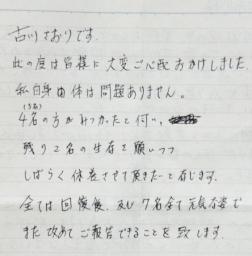 古川さおりです。
此の度は皆様に大変ご心配おかけしました。
私自身 体は問題ありません。
(5名)
4名の方がみつかったと伺い、
残り2名の生存を願いつつ
しばらく休養させて頂きたいと存じます。
全ては回復後、及び7名全て元気な姿で
また改めてご報告できることを致します。